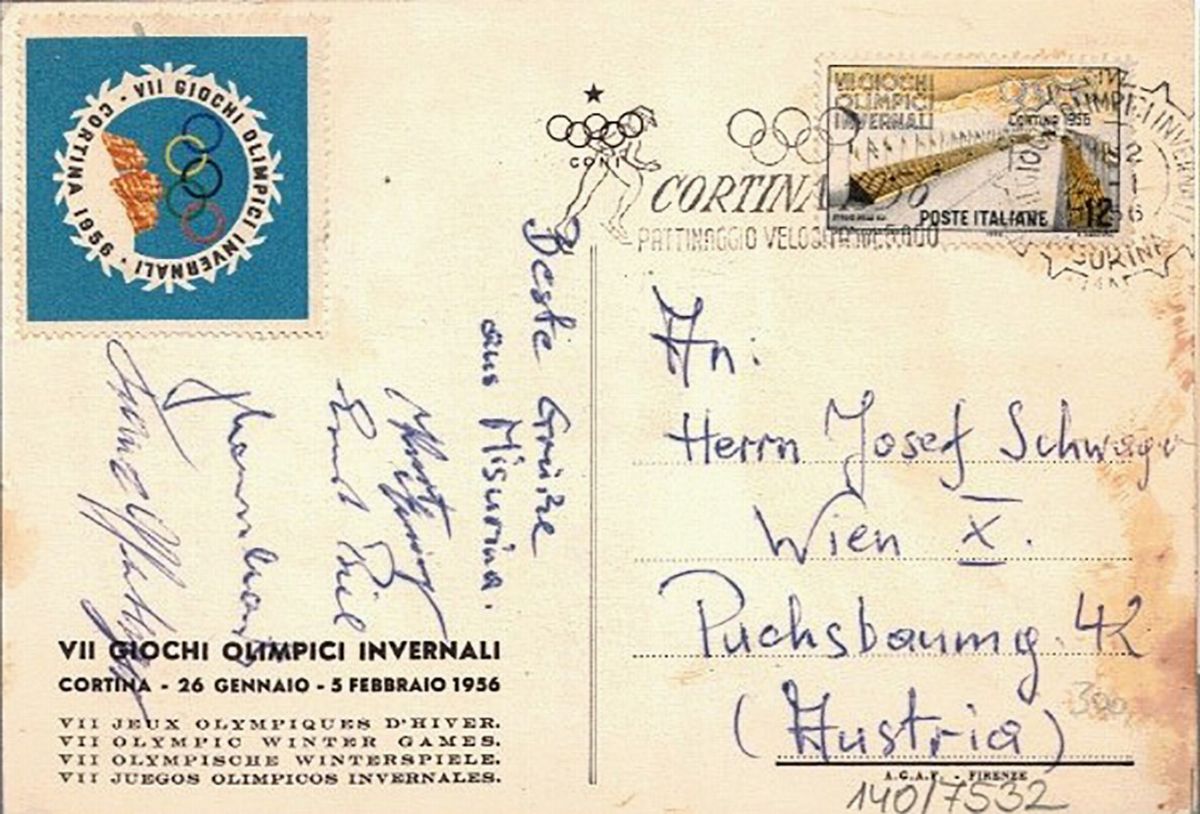 CORTINA 1956 · VII GIOCHI OLIMPICI INVERNALI ·
CONI
CORTINA 1956
PATTINAGGIO VELOCITA
VII GIOCHI
OLIMPICI
INVERNALI
CORTINA 1956
POSTE ITALIANE
12
Beste Grüße
aus Misurina.
Ernst
An:
Herrn Josef Schwager
Wien X.
Puchsbaumg. 42
(Austria)
300
VII GIOCHI OLIMPICI INVERNALI
CORTINA - 26 GENNAIO - 5 FEBBRAIO 1956
VII JEUX OLYMPIQUES D'HIVER.
VII OLYMPIC WINTER GAMES.
VII OLYMPISCHE WINTERSPIELE.
VII JUEGOS OLIMPICOS INVERNALES.
A.G.A.F. - FIRENZE
140/7532